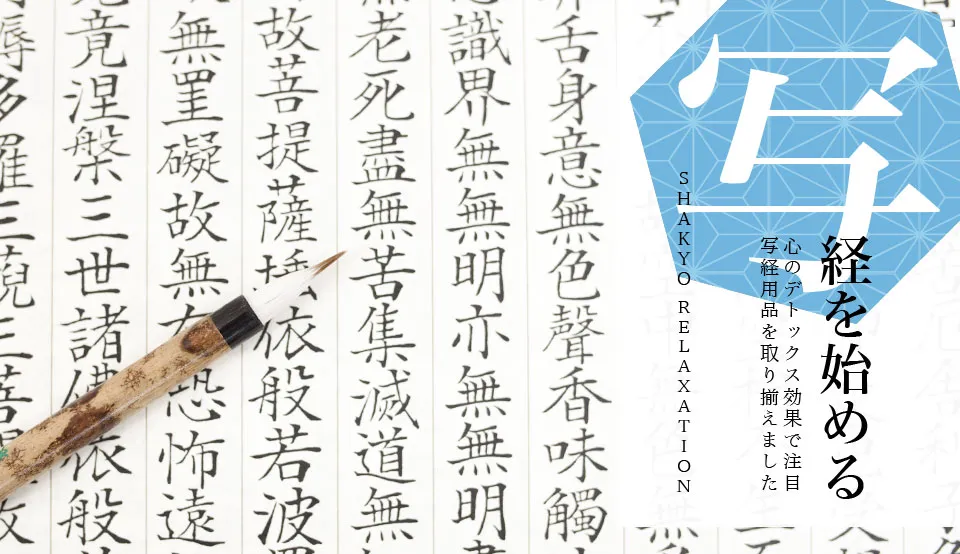 写経を始める
心のデトックス効果で注目
写経用品を取り揃えました
SHAKYO RELAXATION
舌身意無色聲香味觸
識界無無明亦無無明
老死盡無苦集滅道無
故菩提薩埵依般若波
無罣礙故無有恐怖遠
竟涅槃三世諸佛依般
多羅三藐三菩